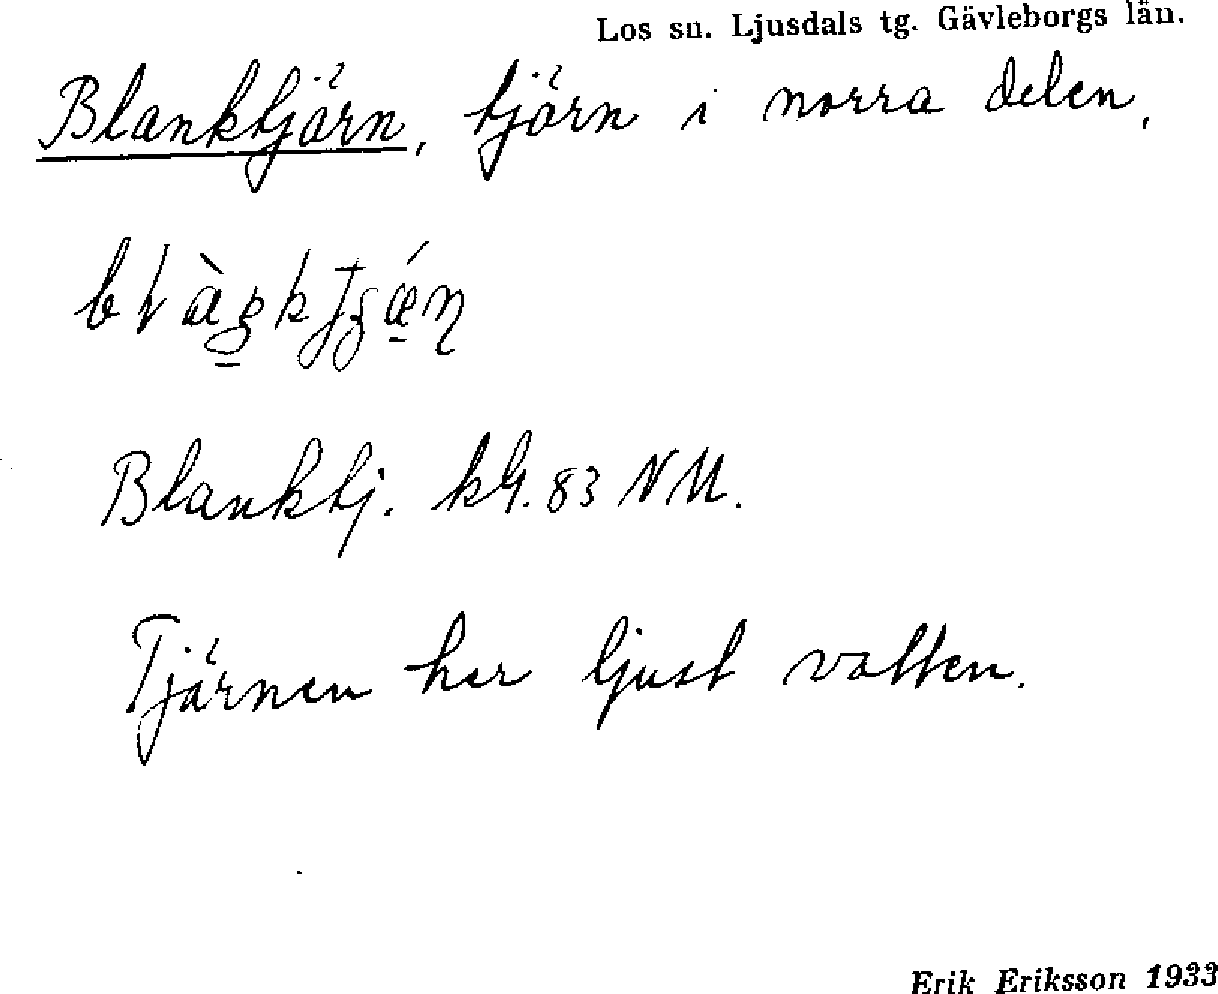 Los sn. Ljusdals tg. Gävleborgs län.
Blanktjärn, tjärn i norra delen,
Blanktj. kbl. 83 NM.
Tjärnen har ljust vatten.
Erik Eriksson 1933